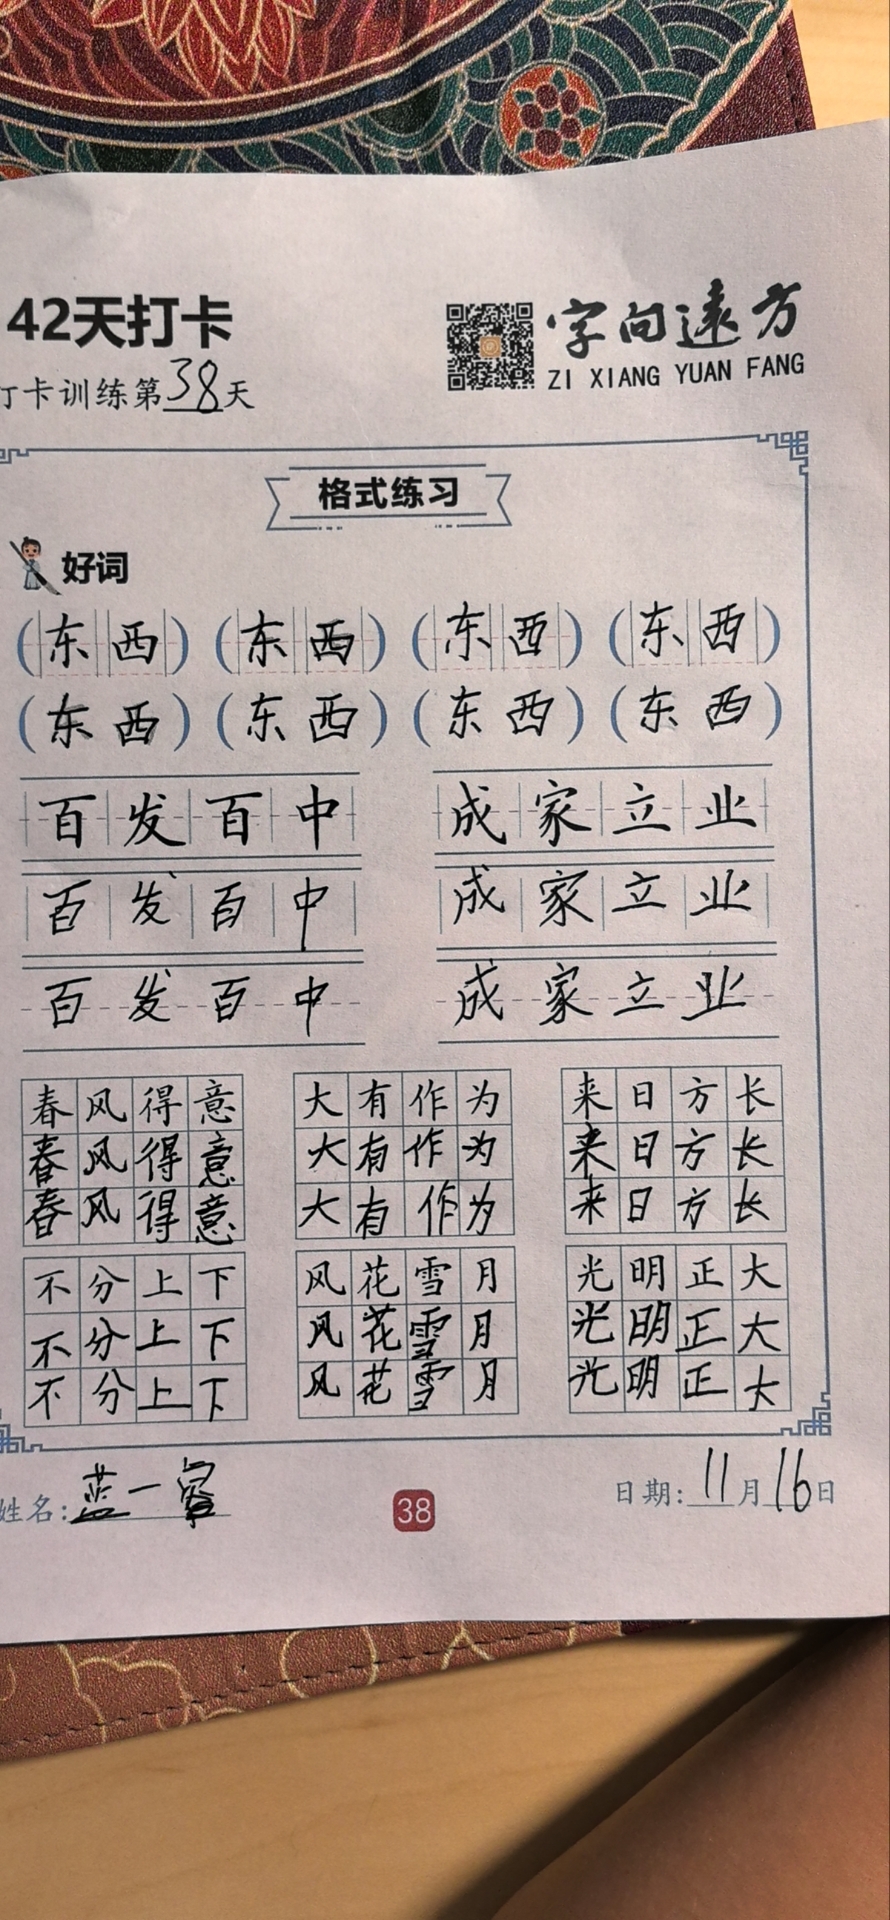 42天打卡
字向远方
打卡训练第38天
ZI XIANG YUAN FANG
格式练习
好词
(东西) (东西) (东西) (东西)
(东西) (东西) (东西) (东西)
百发百中 成家立业
百发百中 成家立业
百发百中 成家立业
春风得意 大有作为 来日方长
春风得意 大有作为 来日方长
春风得意 大有作为 来日方长
不分上下 风花雪月 光明正大
不分上下 风花雪月 光明正大
不分上下 风花雪月 光明正大
姓名:蓝一 38 日期:11月16日